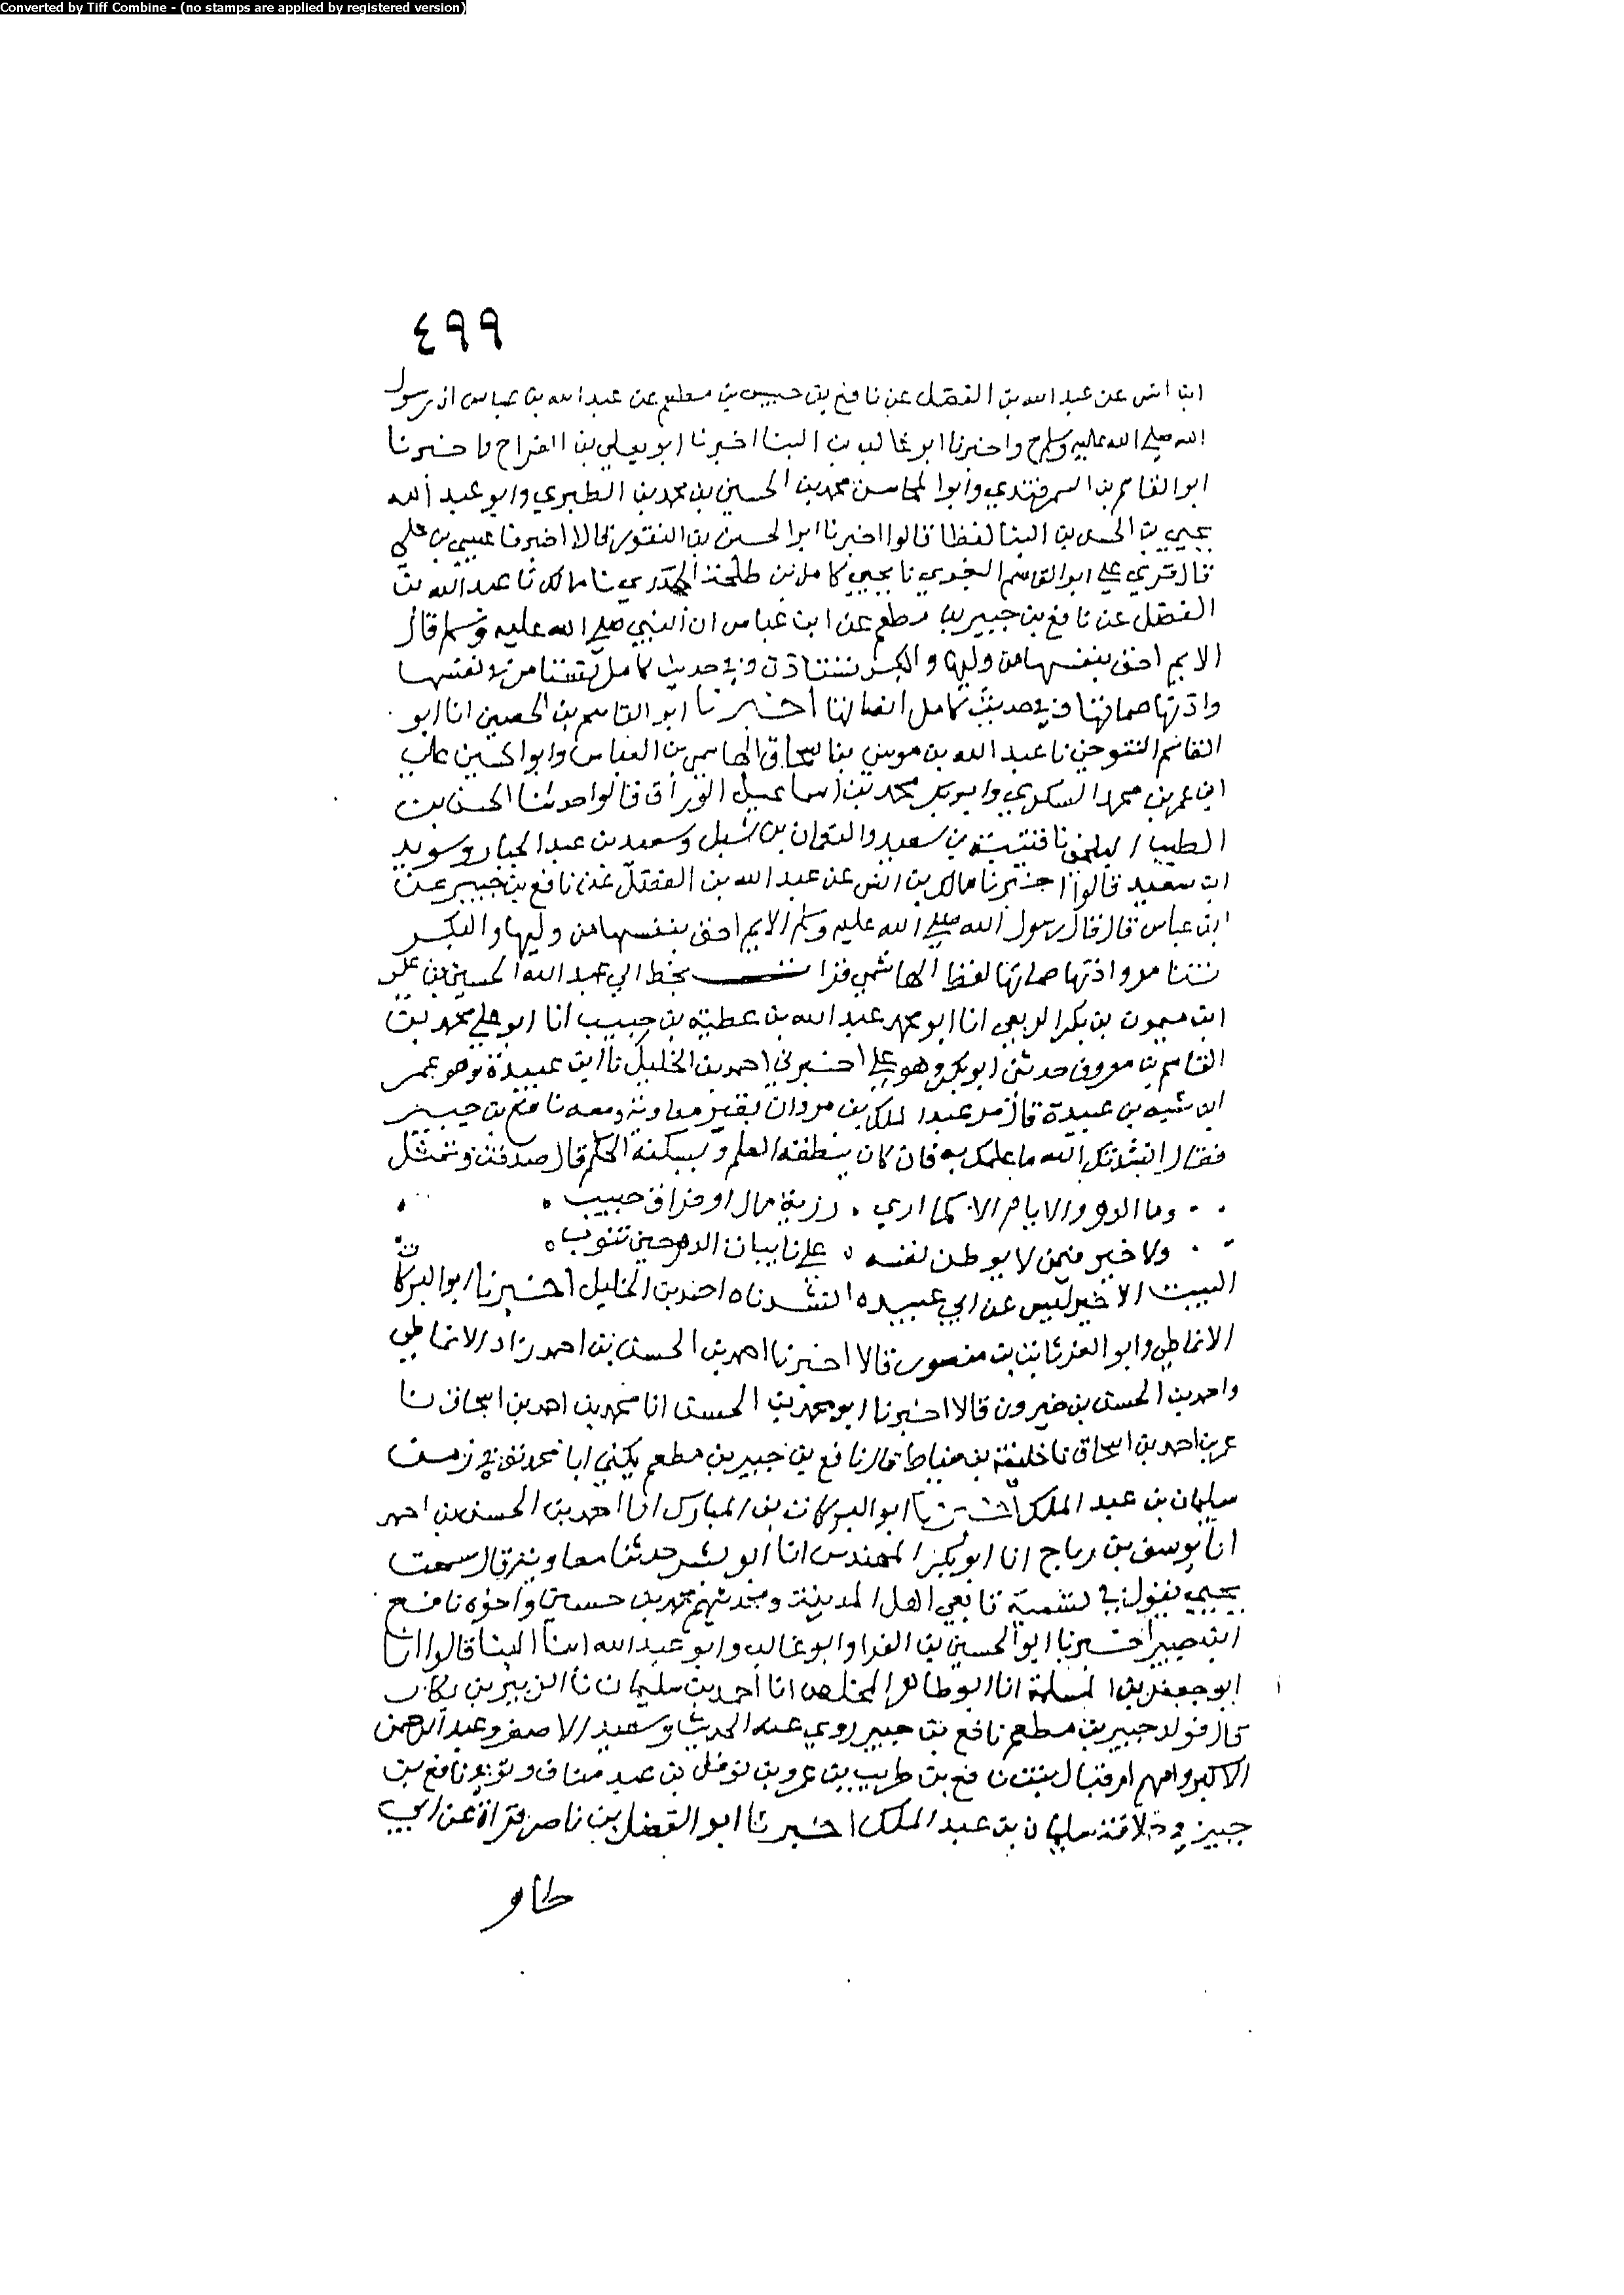 Converted by Tiff Combine - (no stamps are applied by registered version)
٤٩٩
ابن انس عن عبد الله بن الفضل عن نافع بن جبير بن مطعم عن عبد الله بن عباس ان رسول
الله صلى الله عليه وسلم ح واخبرنا ابو غالب بن البنا اخبرنا ابو يعلي بن الفراح واخبرنا
ابو القاسم بن السمرقندي وابو المحاسن محمد بن الحسين بن محمد بن الطبري وابو عبد الله
يحيي بن الحسن بن البنا لفظا قالوا اخبرنا ابو الحسين بن النقور قالا اخبرنا عيسي بن علي
قال قري علي ابو القاسم البغوي نا يحيي كامل بن طلحة الجحدري نا مالك نا عبد الله بن
الفضل عن نافع بن جبير بن مطعم عن ابن عباس ان النبي صلي الله عليه وسلم قال
الايم احق بنفسها من وليها والبكر تستاذن وفي حديث كامل تستامر في نفسها
واذنها صماتها وفي حديث كامل اخبرنا ابو القاسم بن الحصين انا ابو
القاسم التنوخي نا عبد الله بن موسي بن اسحاق الهاشمي بن العباس وابو الحسين علي
ابن عمر بن محمد السكري وابو بكر محمد بن اسماعيل الوراق قالوا حدثنا الحسن بن
الطيب البلخي نا قتيبة بن سعيد والنعمان بن شبل وسعيد بن عبد الجبار وسويد
ابن سعيد قالوا اخبرنا مالك بن انس عن عبد الله بن الفضل عن نافع بن جبير عن
ابن عباس قال قال رسول الله صلي الله عليه وسلم الايم احق بنفسها من وليها والبكر
تستامر واذنها صماتها لفظ الهاشمي قرات بخط ابي عبد الله الحسين بن علي
ابن ميمون بن بكر الربعي انا ابو محمد عبد الله بن عطية بن حبيب انا ابو علي محمد بن
القاسم بن معروف حدثني ابو بكر وهو علي اخبرني احمد بن الخليل نا ابن عبيدة وهو عمر
ابن شبه بن عبيدة قال مر عبد الملك بن مروان بقبر معاوية ومعه نافع بن جبير
فقال انشدتك الله ما علمك به فان كان ينطقه العلم ويسكته الحلم قال صدقت وتمثل
وما الدهر والايام الا كما اري . رزية مال او فراق حبيب
ولا خير فيمن لا يوطن نفسه . علي نايبات الدهر حين تنوب
البيت الاخير ليس عن ابي عبيده انشدناه احمد بن الخليل اخبرنا ابو البركات
الانماطي وابو العز ثابت بن منصور قالا اخبرنا احمد بن الحسن بن احمد زاد الانماطي
واحمد بن الحسن بن خيرون قالا اخبرنا ابو محمد بن الحسن انا محمد بن احمد بن اسحاق نا
عمر بن احمد بن اسحاق نا خليفة بن خياط قال نافع بن جبير بن مطعم يكني ابا محمد توفي في زمن
سليمان بن عبد الملك اخبرنا ابو البركات بن المبارك انا احمد بن الحسن بن احمد
انا يوسف بن رباح انا ابو بكر المهندس انا ابو بشر حدثنا معاوية قال سمعت
يحيي يقول في تسمية تابعي اهل المدينة ومحدثيهم محمد بن حسين واخوه نافع
ابن جبير اخبرنا ابو الحسين بن الفرا وابو غالب وابو عبد الله ابنا البنا قالوا انا
ابو جعفر بن المسلمة انا ابو طاهر المخلص انا احمد بن سليمان نا الزبير بن بكار
قال فولد جبير بن مطعم نافع بن جبير روي عنه الحديث وسعيد الاصغر وعبد الرحمن
الاكبر وامهم ام قتال بنت نافع بن ظريب بن عمرو بن نوفل بن عبد مناف وتوفي نافع بن
جبير في خلافة سليمان بن عبد الملك اخبرنا ابو الفضل بن ناصر قراة عن ابي
طاهر